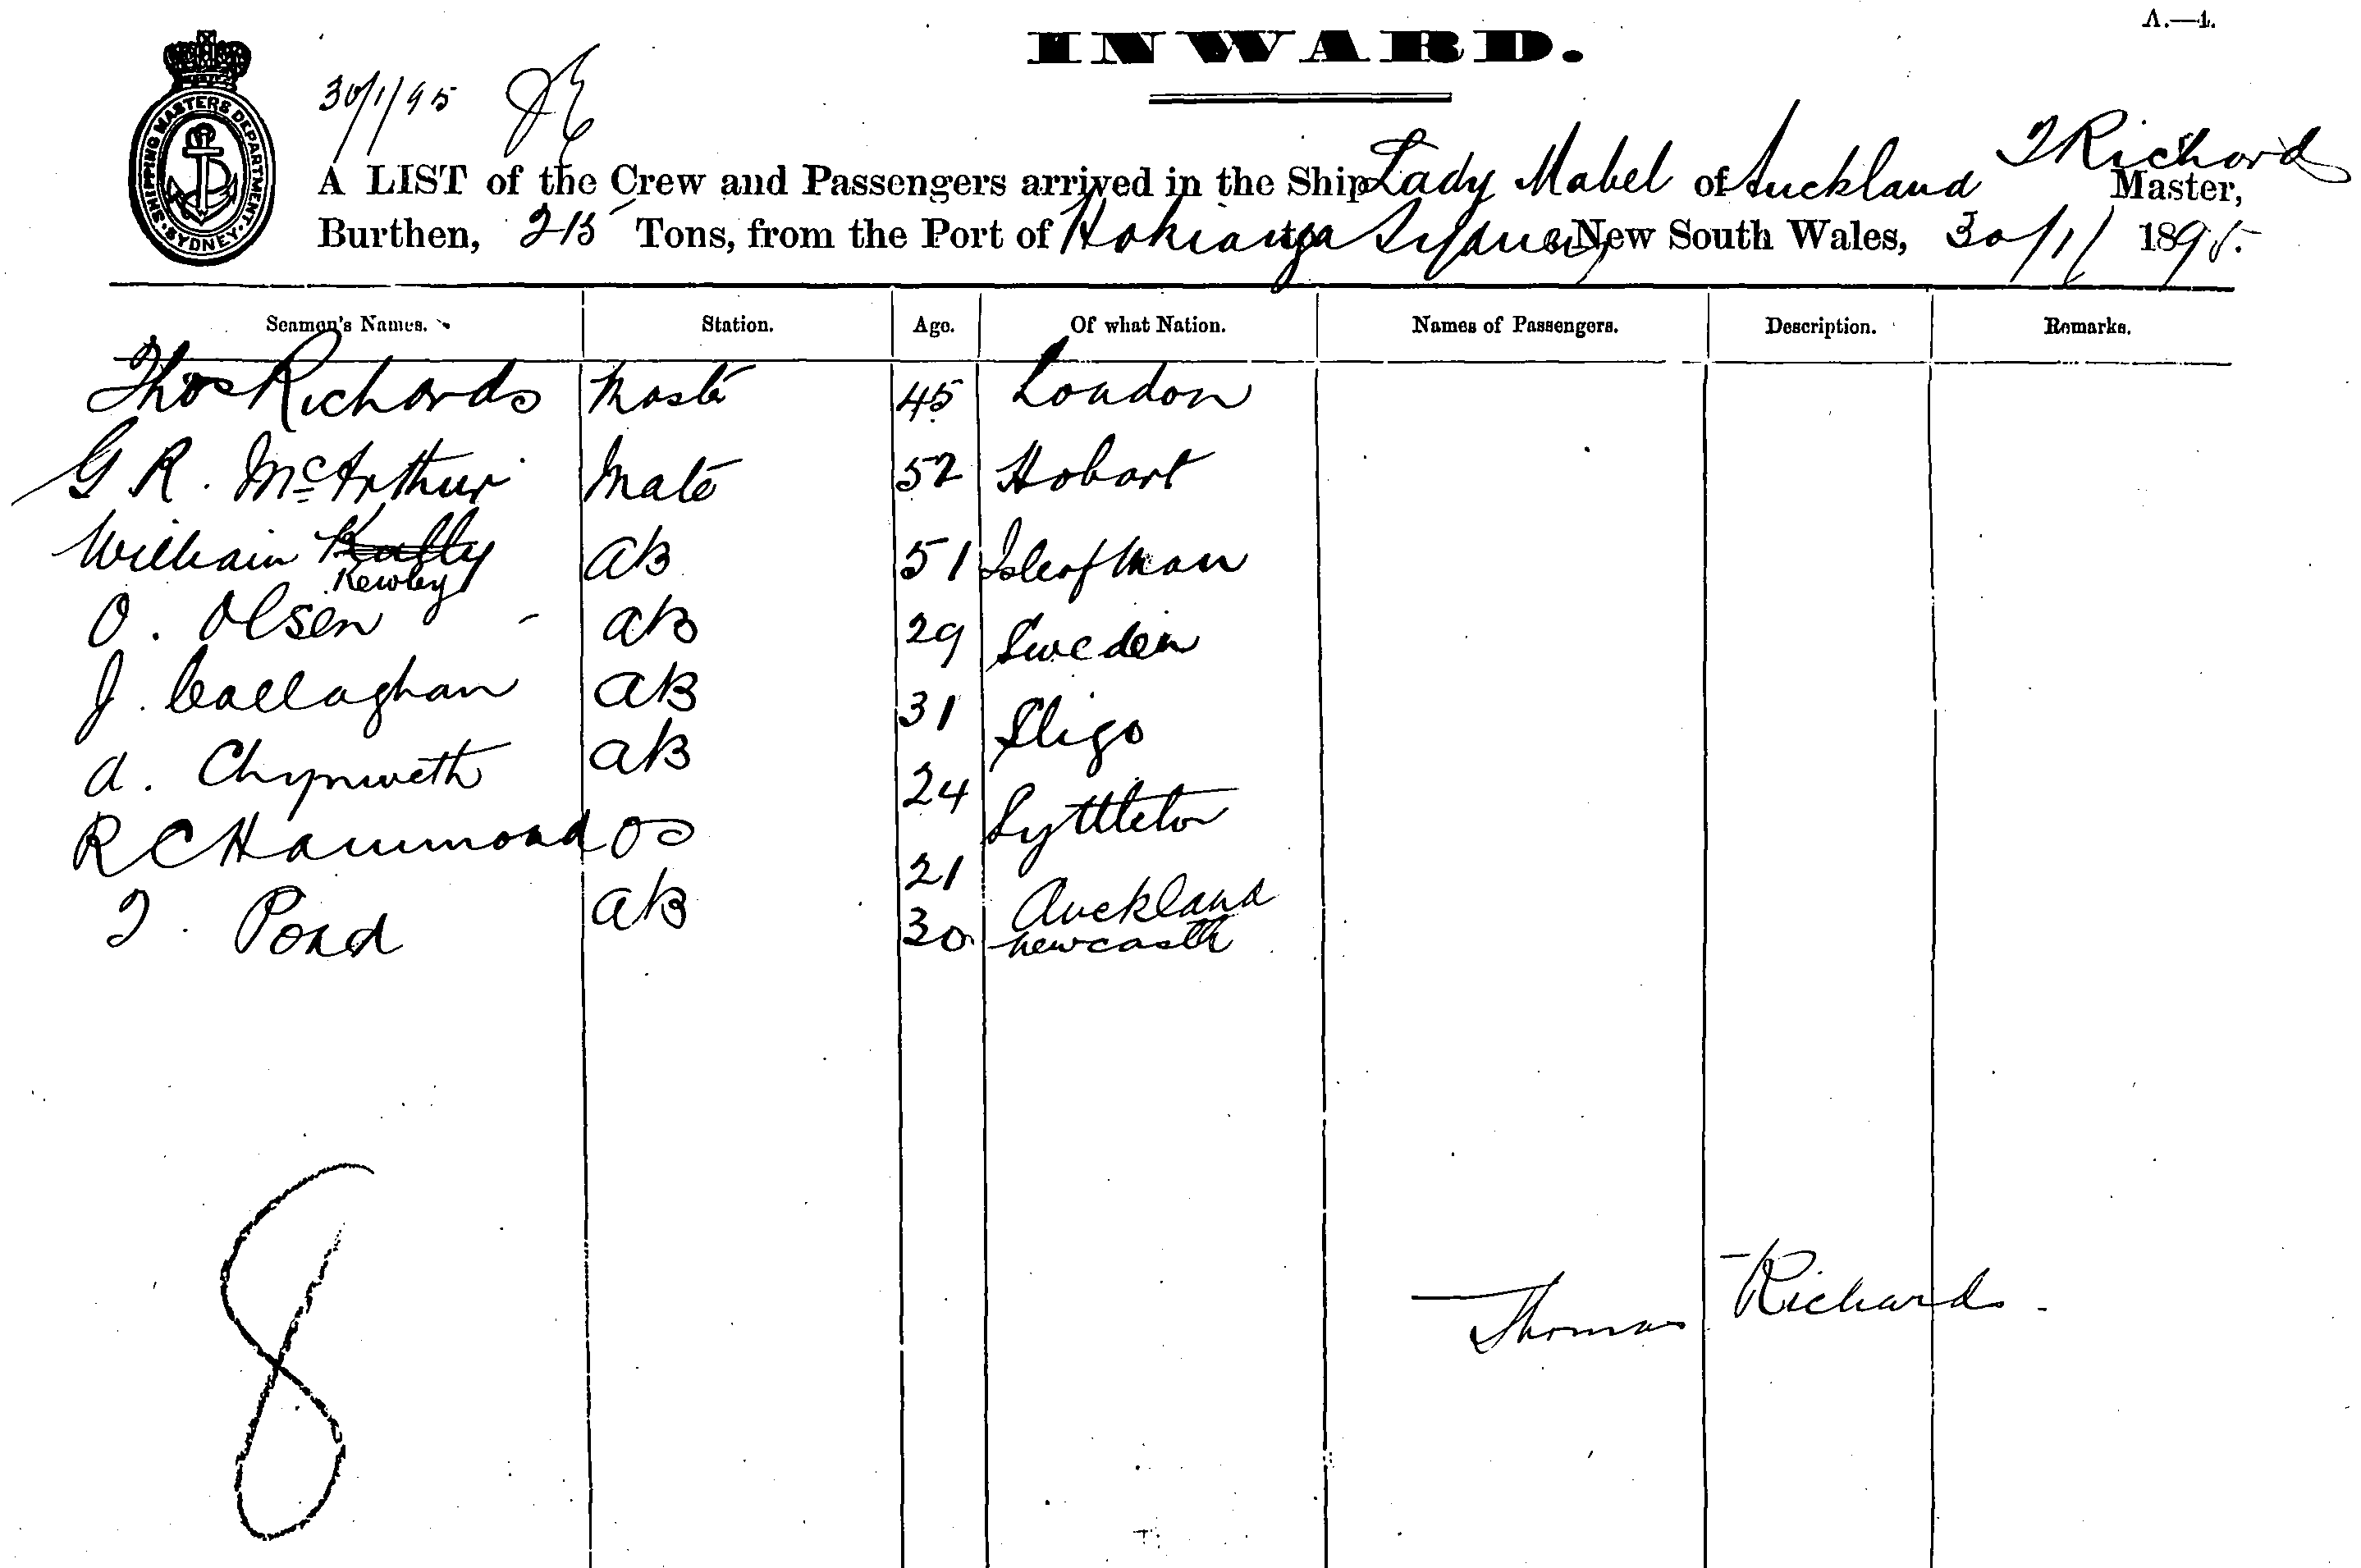 A.—4.
INWARD.
SHIPPING MASTERS DEPARTMENT · SYDNEY ·
30/1/95
A LIST of the Crew and Passengers arrived in the Ship Lady Mabel of Auckland T Richard Master,
Burthen, 215 Tons, from the Port of Hokianga to Sydney New South Wales, 30/1/ 1895.
Seamen's Names. Station. Age. Of what Nation. Names of Passengers. Description. Remarks.
Thos Richards Master 45 London
G R. McArthur Mate 52 Hobart
William AB 51 Isle of Man
Kewley
O. Olsen - AB 29 Sweden
J. Callaghan AB 31 Sligo
A. Chynweth AB 24 Lyttleton
R C Hammond OS 21 Auckland
T. Pond AB 30 Newcastle
Thomas Richards.
8